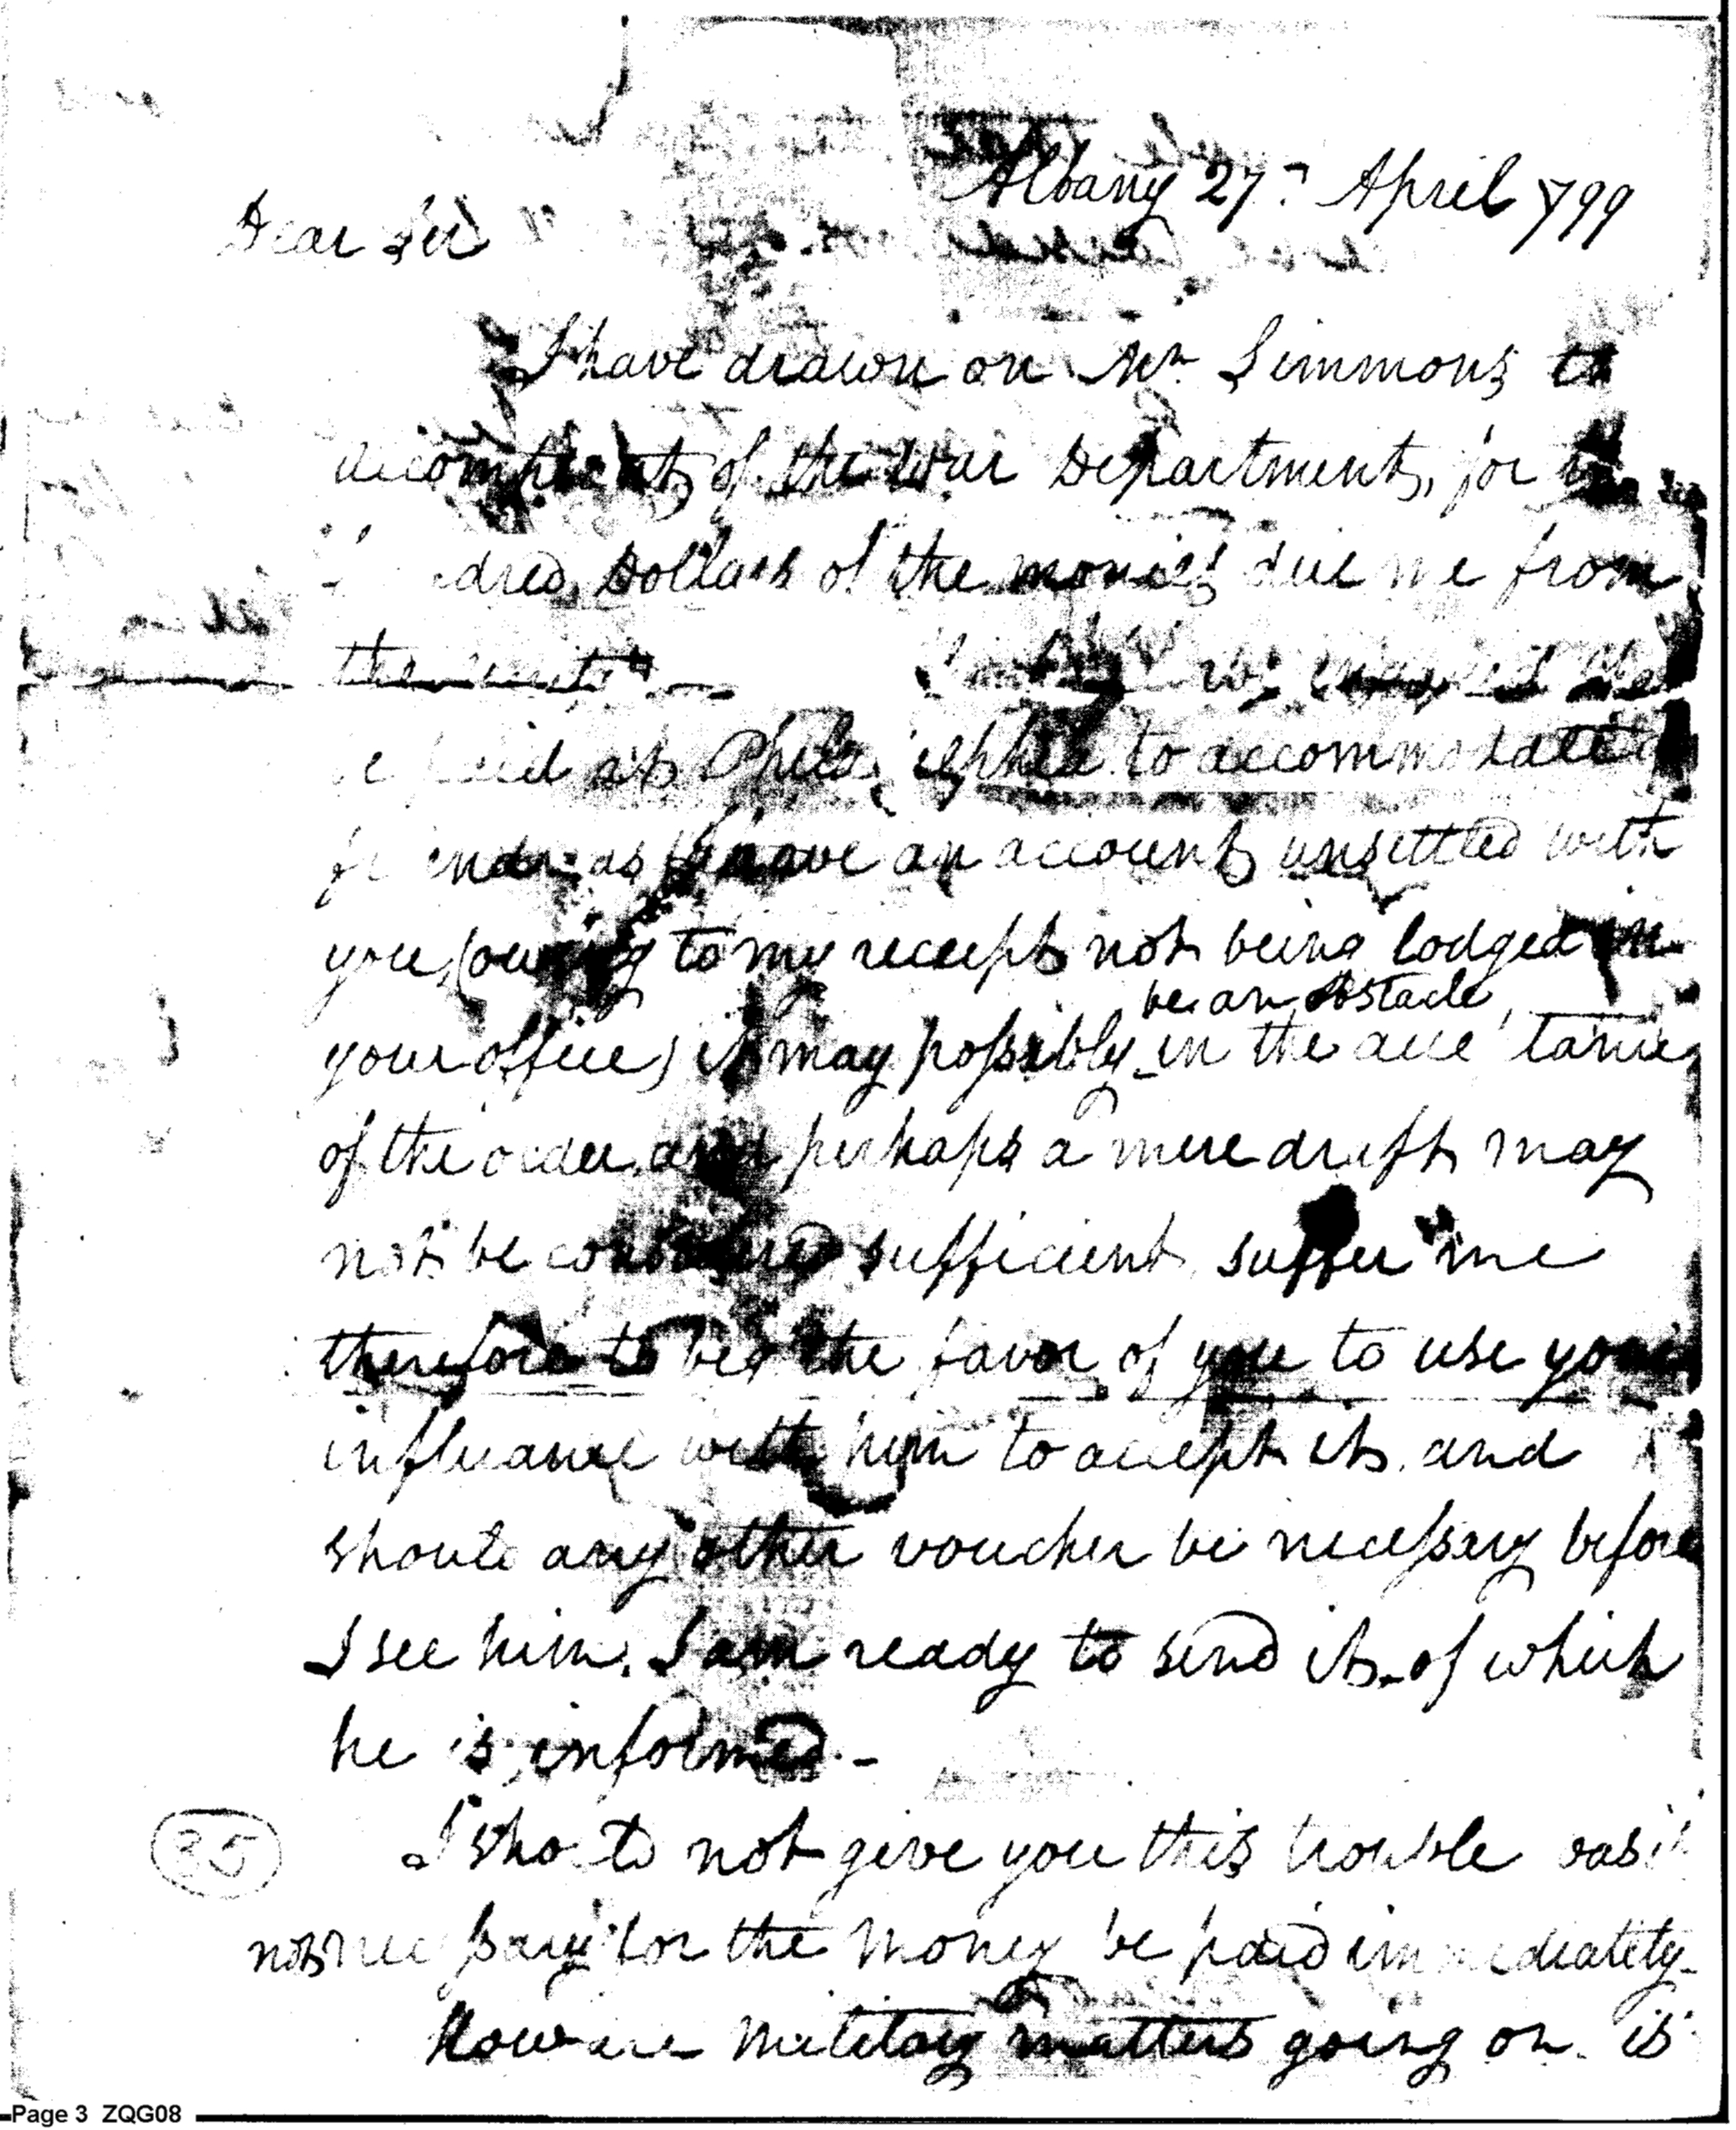 Albany 27 April 799
Dear Sir
I have drawn on Mr Simmons
of the War Department, for
dred Dollars of the monies due me from
the
at to accommodate
as have an account unsettled with
you, (owing to my receipt not being lodged in
be an obstacle
your office) it may possibly in the
of the order, and perhaps a mere draft may
not be sufficient, suffer me
therefore to beg the favor of you to use your
influance with him to accept it, and
should any other voucher be necessary before
I see him, I am ready to send it, of which
he is informed. -
35
I not give you this trouble
not for the money be paid immediately -
How are military matters going on. is
Page 3 ZQG08